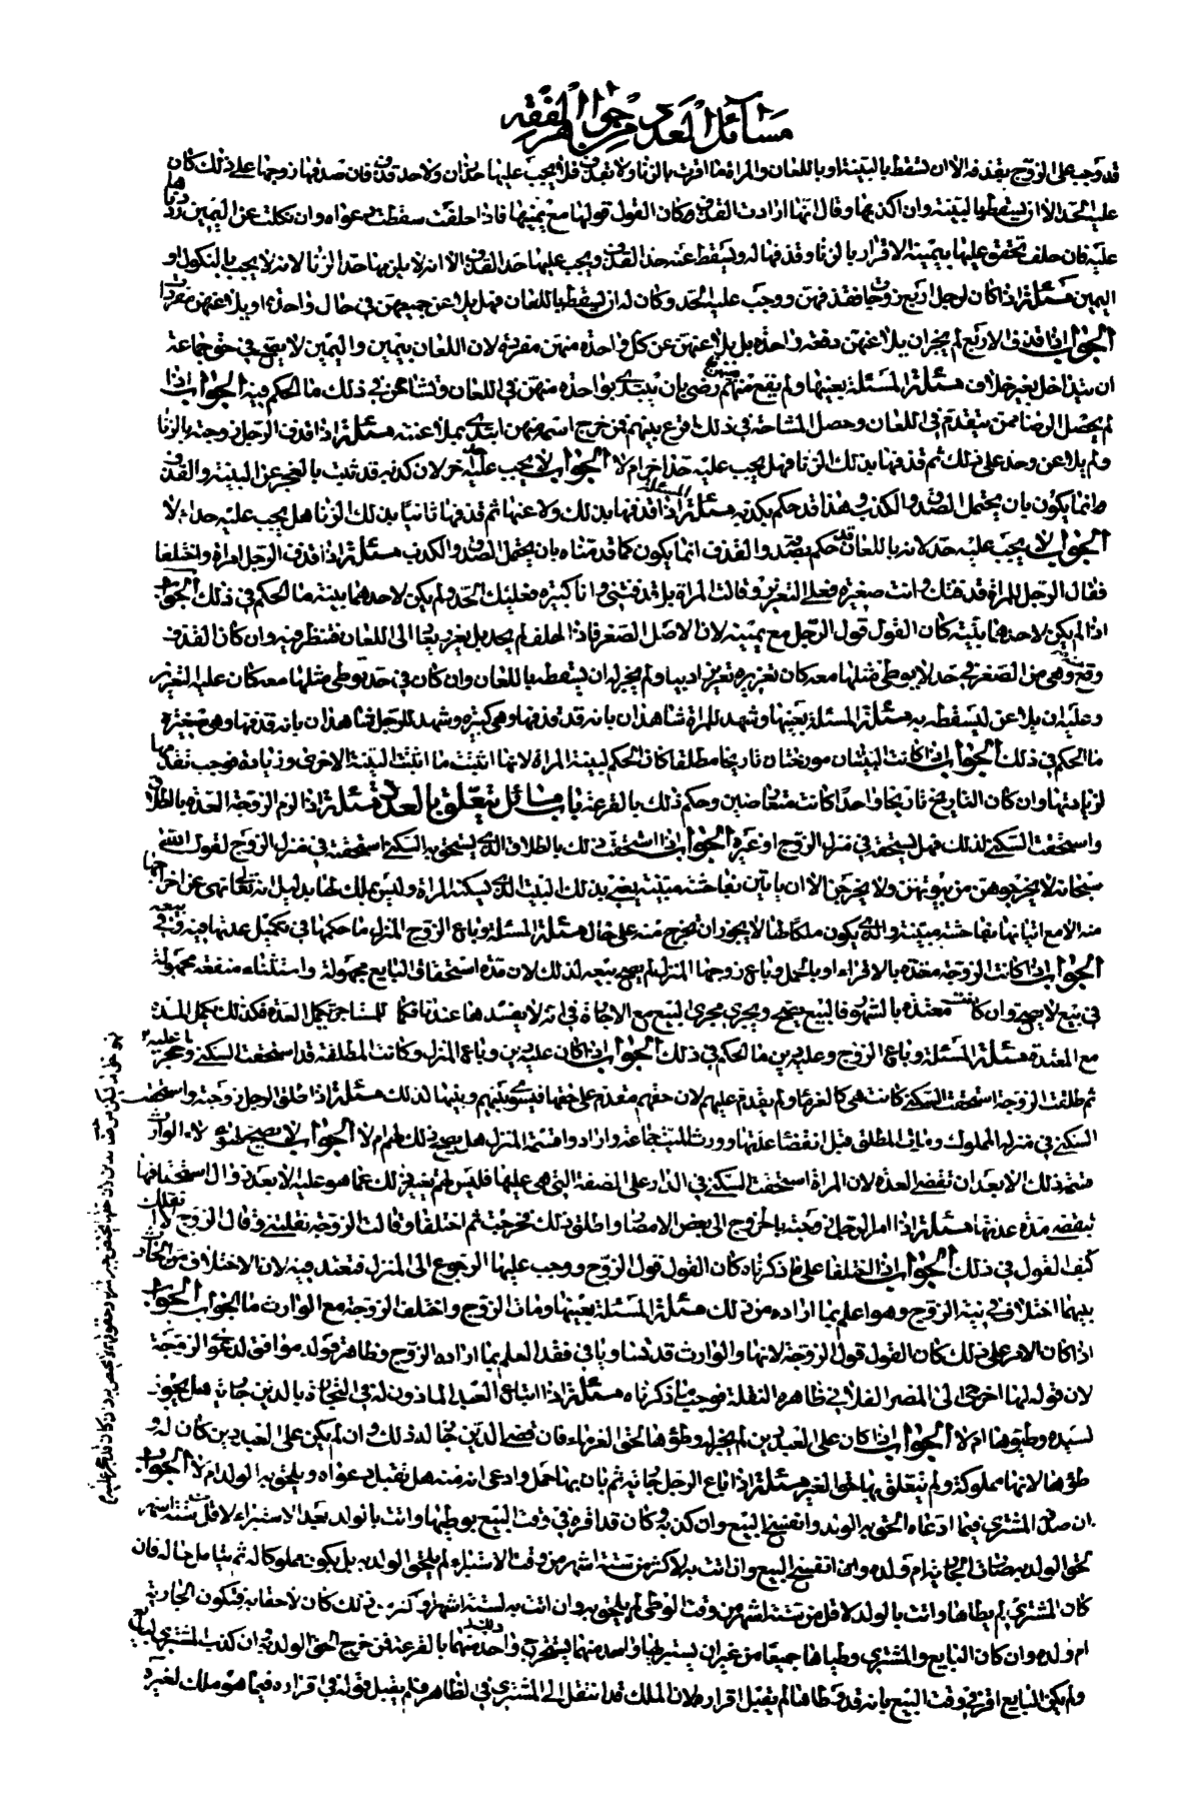 مسائل العدد من جواهر الفقه
قد وجب على الزوج بقذفه الا ان تسقط بالبينة او باللعان والمراة ما اقرت بالزنا ولا تقذف فلا يجب عليها حدان ولا حد قذف فان صدقها زوجها على ذلك كان
عليه الحد الا ان يسقط بالبينة وان اكذبها وقال انها ارادت القذف كان القول قولها مع يمينها فاذا حلفت سقطت دعواه وان نكلت عن اليمين ردناها
عليه فان حلف تحقق عليها بيمينه الاقرار بالزنا وقذفها له ويسقط عنه حد القذف ويجب عليها حد القذف الا انه لا يلزمها حد الزنا لانه لا يجب بالنكول و
اليمين مسئلة اذا كان لرجل اربع زوجات فقذفهن ووجب عليه الحد وكان له ان يسقط باللعان فهل يلاعن جميعهن في حال واحدة او يلاعنهن مفردات
الجواب اذا قذف الاربع لم يجز ان يلاعنهن دفعة واحدة بل يلاعنهن عن كل واحدة منهن مفردة لان اللعان يمين واليمين لا يصح في حق جماعة
ان يتداخل بغير خلاف مسئلة المسئلة بعينها ولم يقع منهم رضى بان يبتدى بواحدة منهن في اللعان وتشاححن في ذلك ما الحكم فيه الجواب اذا
لم يحصل الرضا ممن يتقدم في اللعان وحصل المشاحة في ذلك اقرع بينهم فمن خرج اسمه منهن ابتدى بملاعنته مسئلة اذا قذف الرجل زوجته بالزنا
ولم يلاعن وحد على ذلك ثم قذفها بذلك الزنا فهل يجب عليه حد اخر ام لا الجواب لا يجب عليه حد اخر لان كذبه قد ثبت بالعجز عن البينة والقذف
انما يكون بان يحتمل الصدق والكذب وهذا قد حكم بكذبه مسئلة المسئلة اذا قذفها بذلك ولاعنها ثم قذفها ثانيا بذلك الزنا هل يجب عليه حد ام لا
الجواب لا يجب عليه حد لانه باللعان قد حكم بصدقه والقذف انما يكون كما قدمناه بان يحتمل الصدق والكذب مسئلة اذا قذف الرجل امراة واختلفا
فقال الرجل للمراة قذفتك وانت صغيرة فعلى التعزير وقالت المراة بل قذفتنى وانا كبيرة فعليك الحد ولم يكن لاحدهما بينة ما الحكم في ذلك الجواب
اذا لم يكن لاحدهما بينة كان القول قول الرجل مع يمينه لان الاصل الصغر فاذا حلف لم يحد بل يعزر بقى الى اللعان فننظر فيه وان كان القذف
وقع وهى من الصغر بحد لا يوطى مثلها معه كان تعزيره تعزير ادب ولم يجز له ان يسقطه باللعان وان كان في حد يوطى مثلها معه كان عليه التعزير
وعليه ان يلاعن ليسقطه به مسئلة المسئلة بعينها وشهد للمراة شاهدان بانه قد قذفها وهى كبيرة وشهد للرجل شاهدان بانه قذفها وهى صغيرة
ما الحكم في ذلك الجواب اذا كانت البينتان مورختان تاريخا مطلقا كان الحكم لبينة المراة لانها اثبتت ما اثبتت البينة الاخرى وزيادة فوجب تقديمها
لزيادتها وان كان التاريخ تاريخا واحدا كانت متعارضين وحكم ذلك بالقرعة باب مسائل يتعلق بالعدد مسئلة اذا لزم الزوجة العدة بالطلاق
واستحقت السكنى لذلك فهل يستحقه في منزل الزوج او غيره الجواب اذا استحقت ذلك بالطلاق الذى يستحق به السكنى استحقته في منزل الزوج لقول الله
سبحانه لا يخرجوهن من بيوتهن ولا يخرجن الا ان ياتين بفاحشة مبينة يعنى بذلك البيت الذى يسكنه المراة وليس يملك لها بدليل انه تعالى نهى عن اخراجها
منه الا مع اتيانها بفاحشة مبينة والذى يكون ملكا لها لا يجوز ان تخرج منه على حال مسئلة المسئلة وباع الزوج المنزل ما حكمها في تكميل عدتها فيه وفى بيعه
الجواب اذا كانت الزوجة معتدة بالاقراء او بالحمل وباع زوجها المنزل لم يصح بيعه لذلك لان مدة استحقاق البايع مجهولة واستثناء منفعة مجهولة
في بيع لا يصح وان كانت معتدة بالشهور فالبيع صحيح ويجرى مجرى البيع مع الاجارة في انه لا يفسدها عندنا فكما للمستاجر تكمل العدة فكذلك تكمل المدة
مع المعتدة مسئلة المسئلة وباع الزوج وعليه دين ما الحكم في ذلك الجواب اذا كان عليه دين وباع المنزل وكانت المطلقة قد استحقت السكنى وحجر
ثم طلقت الزوجة استحقت السكنى كانت هى كالغرماء ولم يقدم عليهم لان حقهم مقدم على حقها فيسوى بينهم وبينها لذلك مسئلة اذا طلق الرجل زوجته واستحقت
السكنى في منزله المملوك ومات المطلق قبل انقضاء عدتها وورث البيت جماعة وارادوا قسمة المنزل هل يصح ذلك لهم ام لا الجواب لا يصح لهؤلاء الوارث
قسمة ذلك الا بعد ان تنقضى العدة لان المراة استحقت السكنى في الدار على الصفة التى هى عليها فليس لهم تغيير ذلك عما هو عليه الا بعد زوال استحقاقها
بنقضه مدة عدتها مسئلة اذا امر الرجل زوجته بالخروج الى بعض الامصار واطلق ذلك فخرجت ثم اختلفا وقالت الزوجة نقلتنى وقال الزوج لا انقلك
كيف القول في ذلك الجواب اذا اختلفا على ما ذكرناه كان القول قول الزوج ووجب عليها الرجوع الى المنزل فتعتد فيه لان الاختلاف
بينهما اختلاف في نية الزوج وهو اعلم بما اراده من ذلك مسئلة المسئلة بعينها ومات الزوج واختلف الزوجة مع الوارث ما الجواب الجواب
اذا كان الامر على ذلك كان القول قول الزوجة لانها والوارث قد تساويا في فقد العلم بما اراده الزوج وظاهر قوله موافق لدعوى الزوجة
لان قوله لها اخرجى الى المصر الفلانى ظاهره النقلة فوجب ما ذكرناه مسئلة اذا ابتاع العبد الماذون له في التجارة بالدين جارية هل يجوز
لسيده وطؤها ام لا الجواب اذا كان على العبد دين لم يجز له وطؤها لحق الغرماء فان قضى الدين جاز له ذلك وان لم يكن على العبد دين كان له و
طؤها لانها مملوكة ولم يتعلق بها حق الغير مسئلة اذا باع الرجل جارية ثم بان بها حمل وادعى انه منه هل تقبل دعواه ويلحق به الولد ام لا الجواب
ان صدق المشترى فيما ادعاه الحق به الولد وانفسخ البيع وان كذبه وكان قد اقر في وقت البيع بوطيها واتت بالولد بعد الاستبراء لاقل من ستة اشهر
لحق الولد به وصارت الجارية ام ولده وانفسخ البيع وان اتت به لاكثر من ستة اشهر من وقت الاستبراء لم يلحق الولد به بل يكون مملوكا له ثم يتامل حاله فان
كان المشترى لم يطاها واتت بالولد لاقل من ستة اشهر من وقت الوطى لم يلحق به وان اتت به لستة اشهر واكثر من ذلك كان لاحقا به فتكون الجارية
ام ولده وان كان البايع والمشترى وطياها جميعا من غير ان يستبريها واحد منهما يستخرج واحد منهما بالقرعة فمن خرج الحق الولد به وان كذب المشترى البايع
ولم يكن البايع اقر في وقت البيع بانه قد وطاها لم يقبل اقراره لان الملك قد انتقل الى المشترى في الظاهر فلم يقبل قوله في اقراره فيما هو ملك لغيره